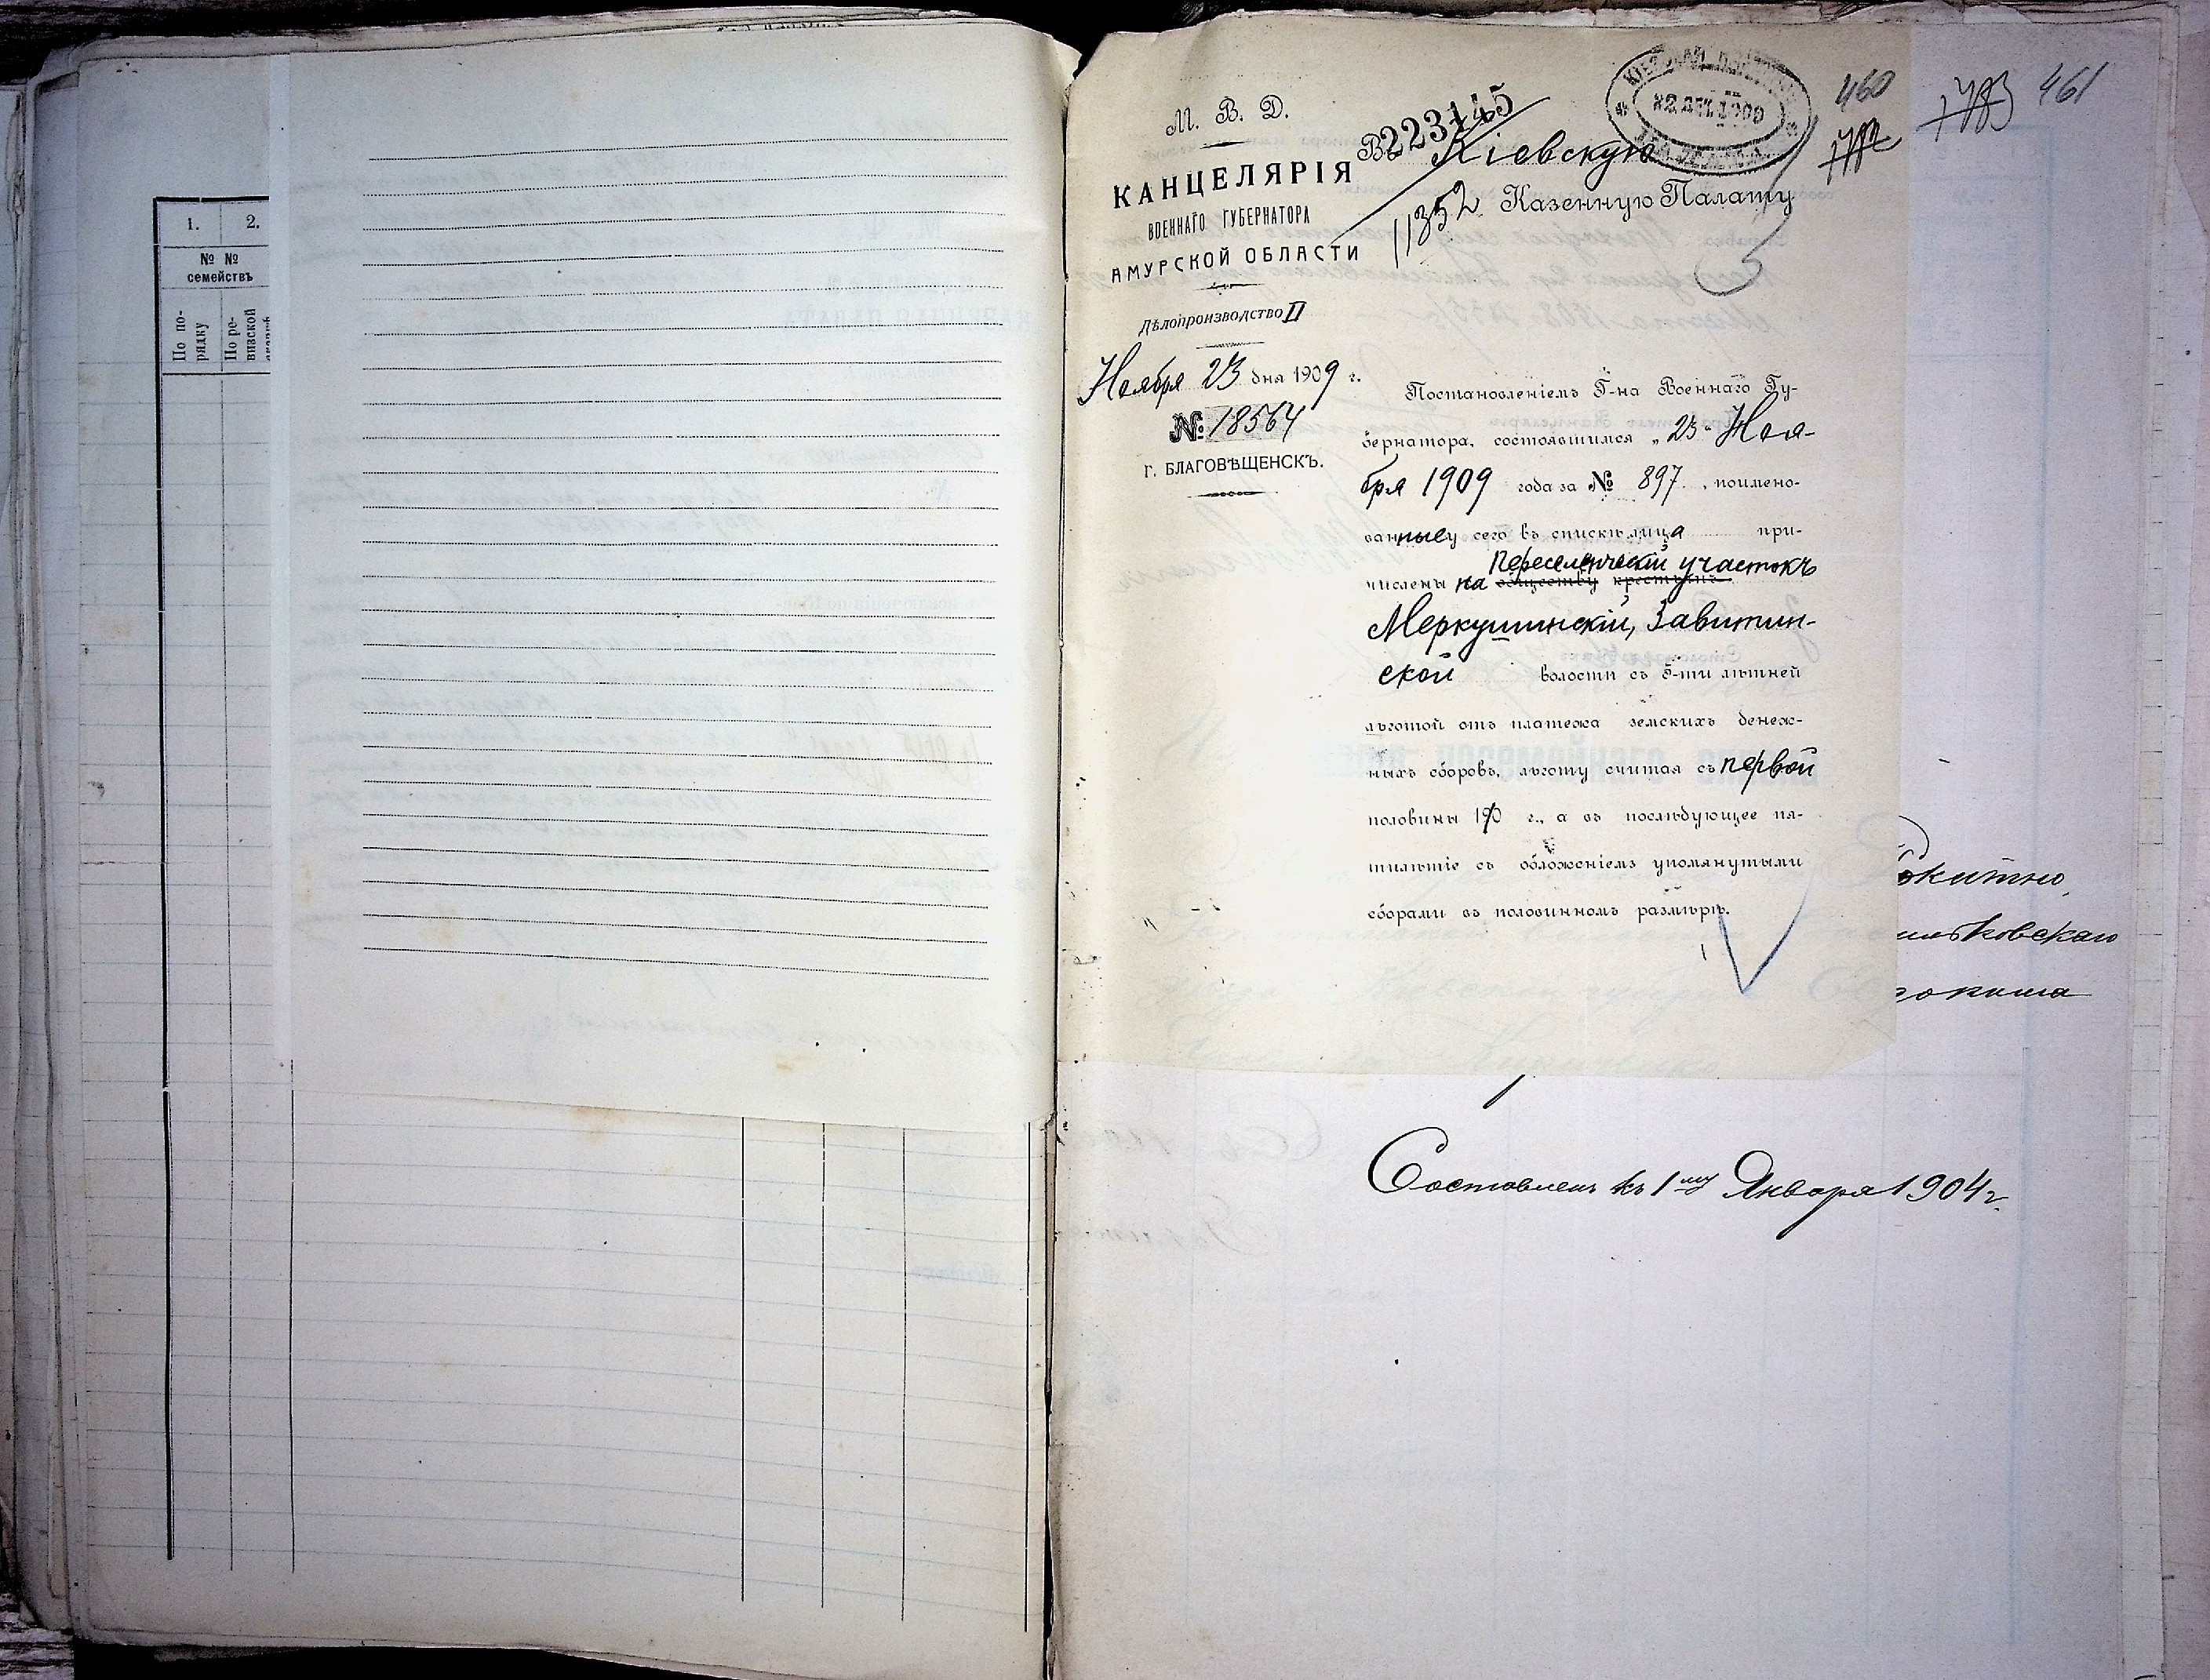 1. 2.
№ №
семействъ
По по-
рядку
По ре-
визской
М. В. Д.
КАНЦЕЛЯРІЯ
ВОЕННАГО ГУБЕРНАТОРА
АМУРСКОЙ ОБЛАСТИ
Дѣлопроизводство II
Ноября 23 дня 1909 г.
№ 18564
Г. БЛАГОВѢЩЕНСКЪ.
223145
Въ Кіевскую
11352
Казенную Палату
460
461
Постановленіемъ Г-на Военнаго Гу-
бернатора, состоявшимся „23" Ноя-
бря 1909 года за № 897, поимено-
ванные сего въ спискѣ лица при-
Переселенческій участокъ
числены на обществу крестьянъ
Меркушинскій, Завитин-
ской волости съ 5-ти лѣтней
льготой отъ платежа земскихъ денеж-
ныхъ сборовъ, льготу считая съ первой
половины 1910 г., а въ послѣдующее пя-
тилѣтіе съ обложеніемъ упомянутыми
сборами въ половинномъ размѣрѣ.
окитно,
ильковскаго
Составленъ къ 1му Января 1904 г.